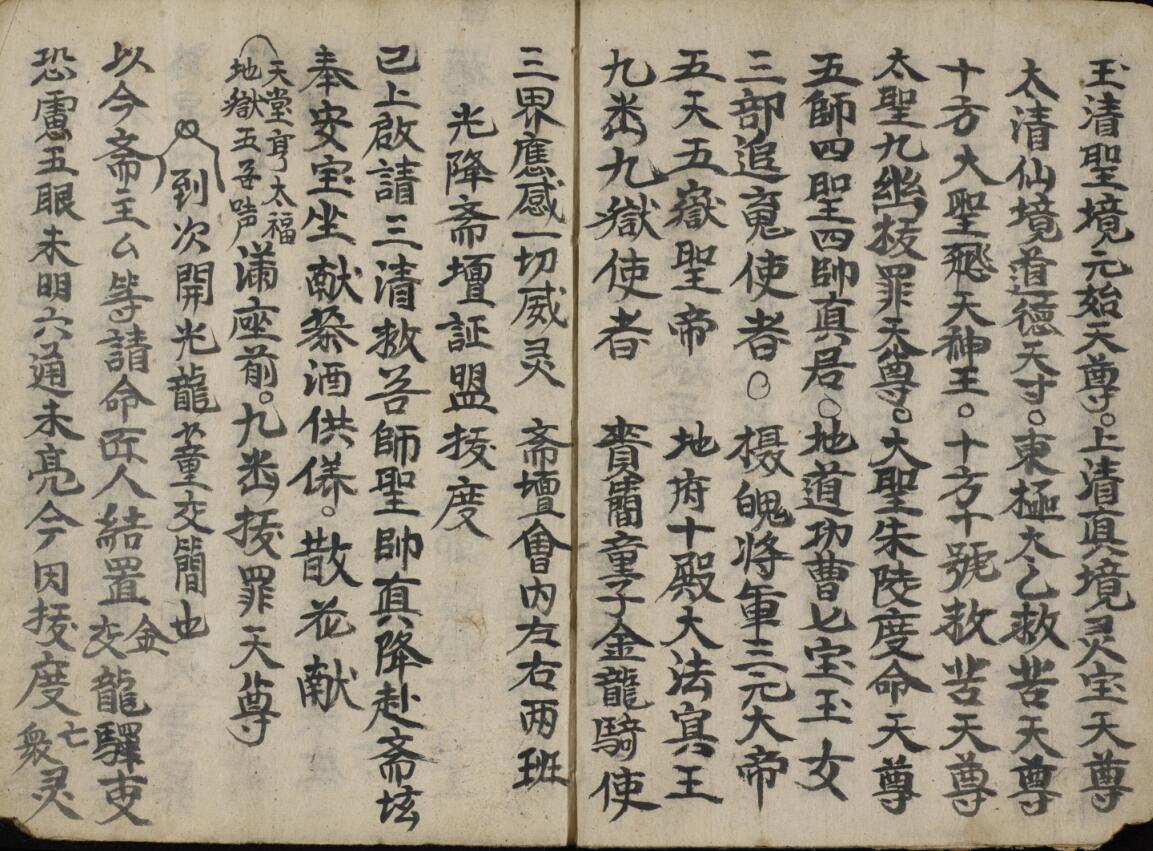 玉清聖境元始天尊。上清真境灵宝天尊
太清仙境道德天寸。東極太乙救苦天尊
十方大聖飛天神王。十方十號救苦天尊
太聖九幽拔罪天尊。大聖朱陵度命天尊
五師四聖四帥真君。地道功曹七宝玉女
三部追䰟使者。摄魄将軍三元大帝
五天五嶽聖帝 地府十殿大法冥王
九幽九獄使者 賫簡童子金龍騎使
三界應感一切威灵 斋壇會内左右两班
光降斋壇証盟拔度
已上啟請三清救苦師聖帥真降赴斋坛
奉安宝坐献茶酒供儀。散花献
天堂享太福
地獄五苦声
满座前。九幽拔罪天尊
到次開光龍童交簡也
以今斋王厶等請命匠人結置金交龍驛吏
恐慮五眼未明六通未亮今因拔度亡衆灵